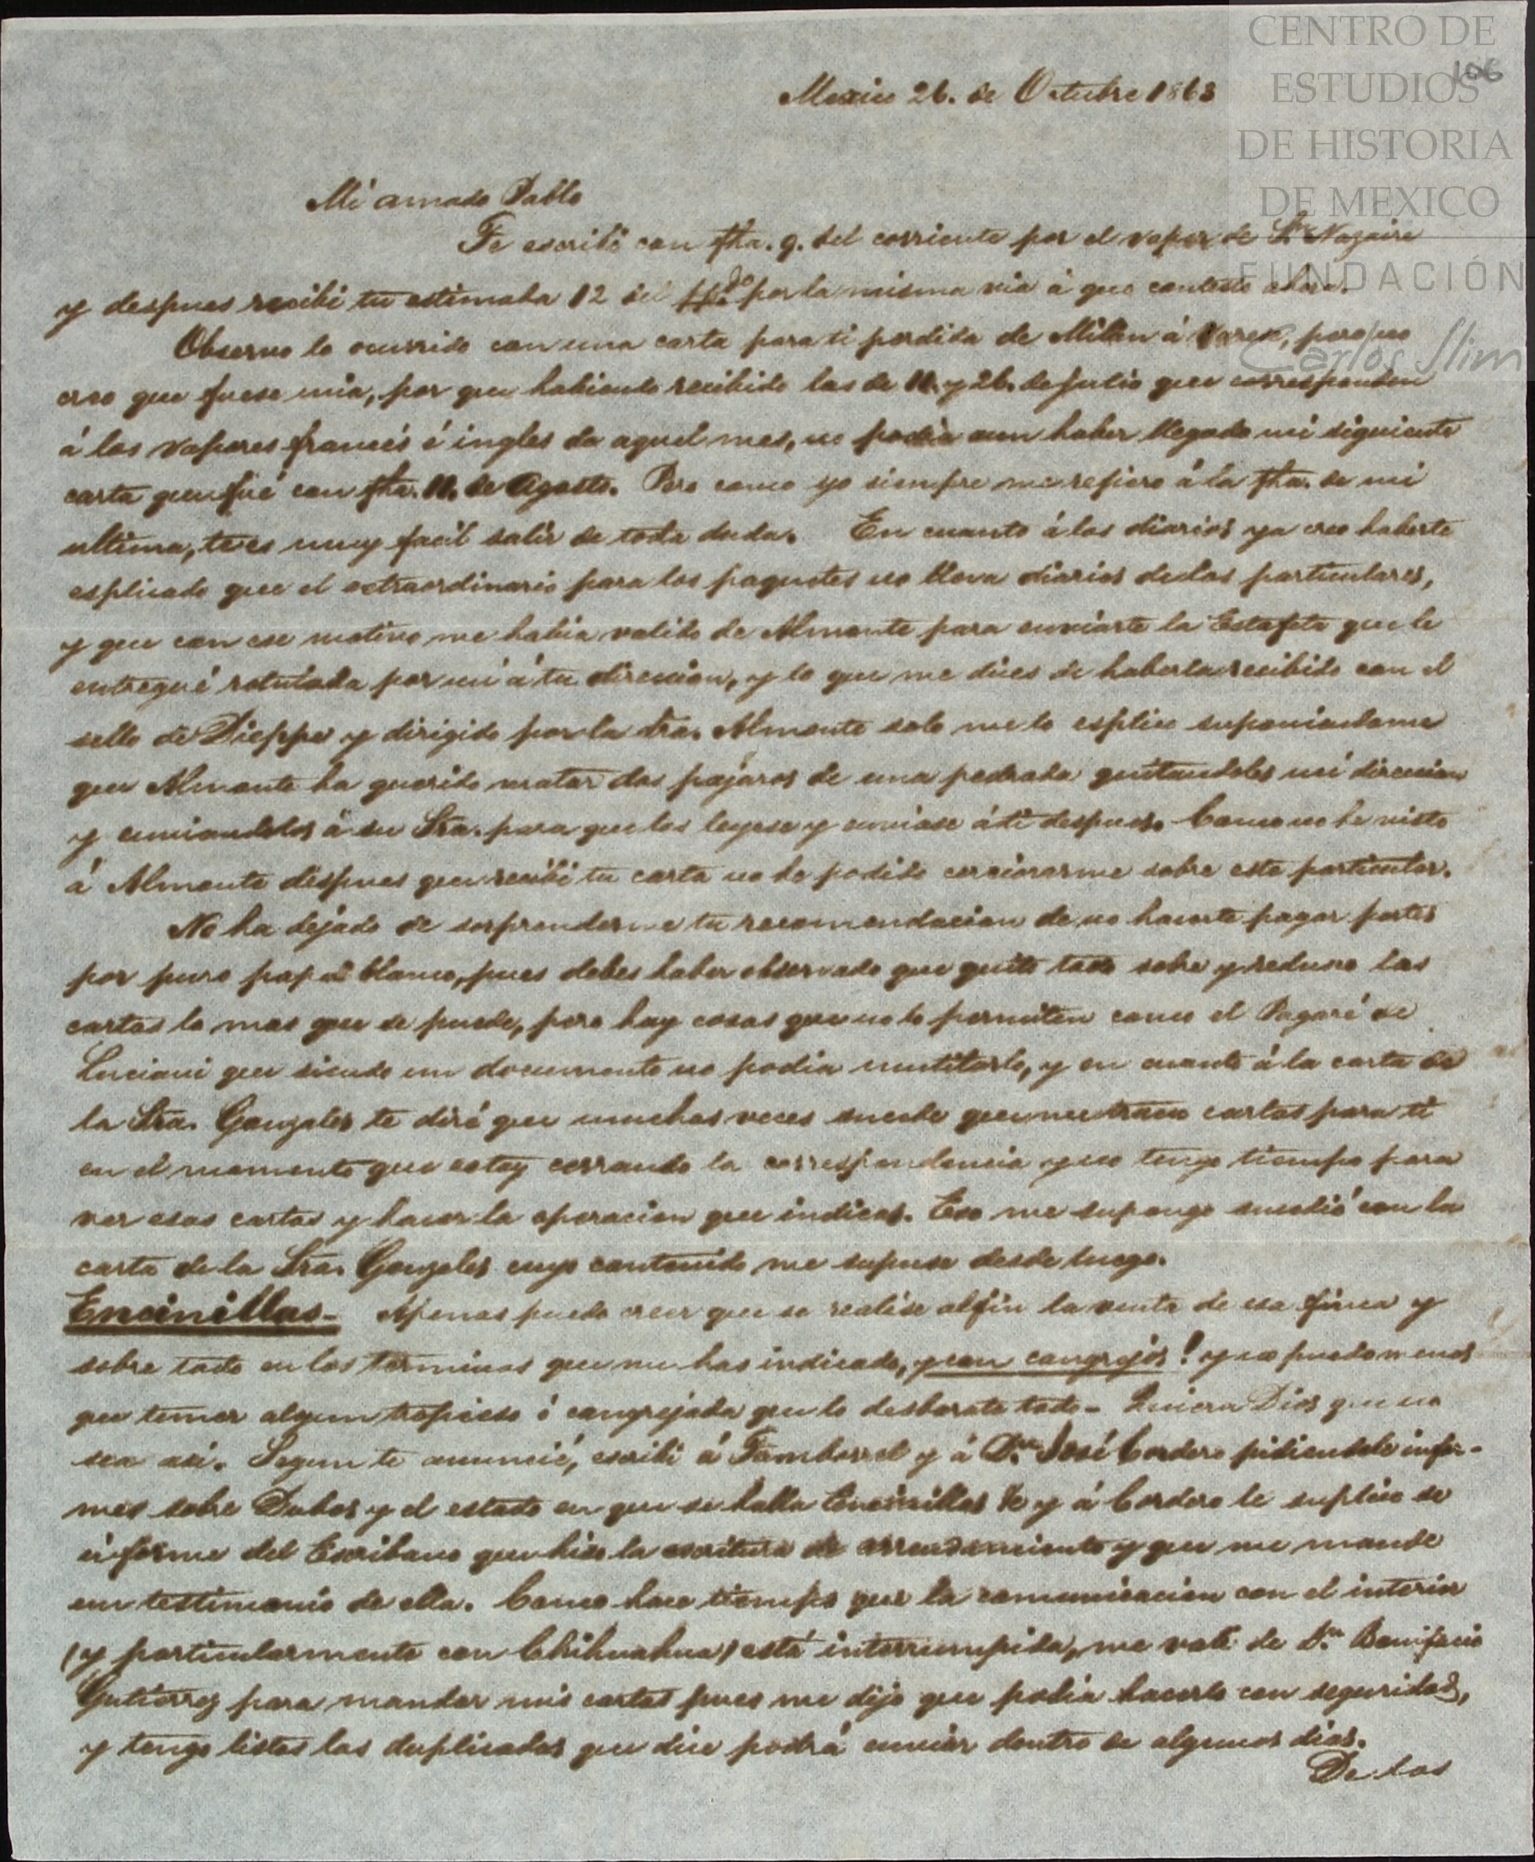 CENTRO DE
ESTUDIOS
DE HISTORIA
DE MEXICO
FUNDACIÓN
Carlos Slim
106
Mexico 26. de Octubre 1863
Mi amado Pablo
Te escribí con fha. 9. del corriente por el vapor de St. Nazaire
y despues recibi tu estimada 12 del ppdo por la misma via á que contesto ahora.
Observo lo ocurrido con una carta para ti perdida de Milan á Varese, pero no
creo que fuese mia, por que habiendo recibido las de 11. y 26. de Julio que corresponden
á los vapores francés é ingles de aquel mes, no podia aun haber llegado mi siguiente
carta que fué con fha. 11. de Agosto. Pero como yo siempre me refiero á la fha. de mi
ultima, te es muy facil salir de toda duda. En cuanto á los diarios ya creo haberte
esplicado que el extraordinario para los paquetes no lleva diarios de los particulares,
y que con ese motivo me habia valido de Almonte para enviarte la Estafeta que le
entregué rotulada por mí á tu direccion, y lo que me dices de haberla recibido con el
sello de Dieppe y dirigido por la Sra. Almonte solo me lo esplico suponiendome
que Almonte ha querido matar dos pajaros de una pedrada quitandoles mi direccion
y enviandolos á su Sra. para que los leyese y enviase á ti despues. Como no he visto
á Almonte despues que recibi tu carta no he podido cerciorarme sobre este particular.
No ha dejado de sorprenderme tu recomendacion de no hacerte pagar portes
por puro papel blanco, pues debes haber observado que quito todo sobre y reduzco las
cartas lo mas que se puede, pero hay cosas que no lo permiten como el Pagaré de
Luciani que siendo un documento no podia mutilarlo, y en cuanto á la carta de
la Sra. Gonzales te diré que muchas veces sucede que me traen cartas para ti
en el momento que estoy cerrando la correspondencia y no tengo tiempo para
ver esas cartas y hacer la operacion que indicas. Eso me supongo sucedió con la
carta de la Sra. Gonzales cuyo contenido me supuse desde luego.
Encinillas- Apenas puedo creer que se realise al fin la venta de esa finca y
sobre todo en los terminos que me has indicado, y con cangrejos! y no puedo menos
que temer algun tropieso ó cangrejada que lo desbarate todo- Quiera Dios que no
sea asi. Segun te anuncié, escribi á Tamborrel y á Dn. José Cordero pidiendole infor-
mes sobre Dubos y el estado en que se halla Encinillas &c y á Cordero le suplico se
informe del Escribano que hiso la escritura de arrendamiento y que me mande
un testimonio de ella. Como hace tiempo que la comunicacion con el interior
(y particularmente con Chihuahua) está interrumpida, me valí de Dn. Bonifacio
Gutierrez para mandar mis cartas pues me dijo que podia hacerlo con seguridad,
y tengo listos los duplicados que dice podrá enviar dentro de algunos dias.
De los